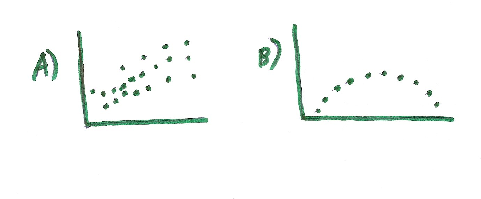 A)
B)